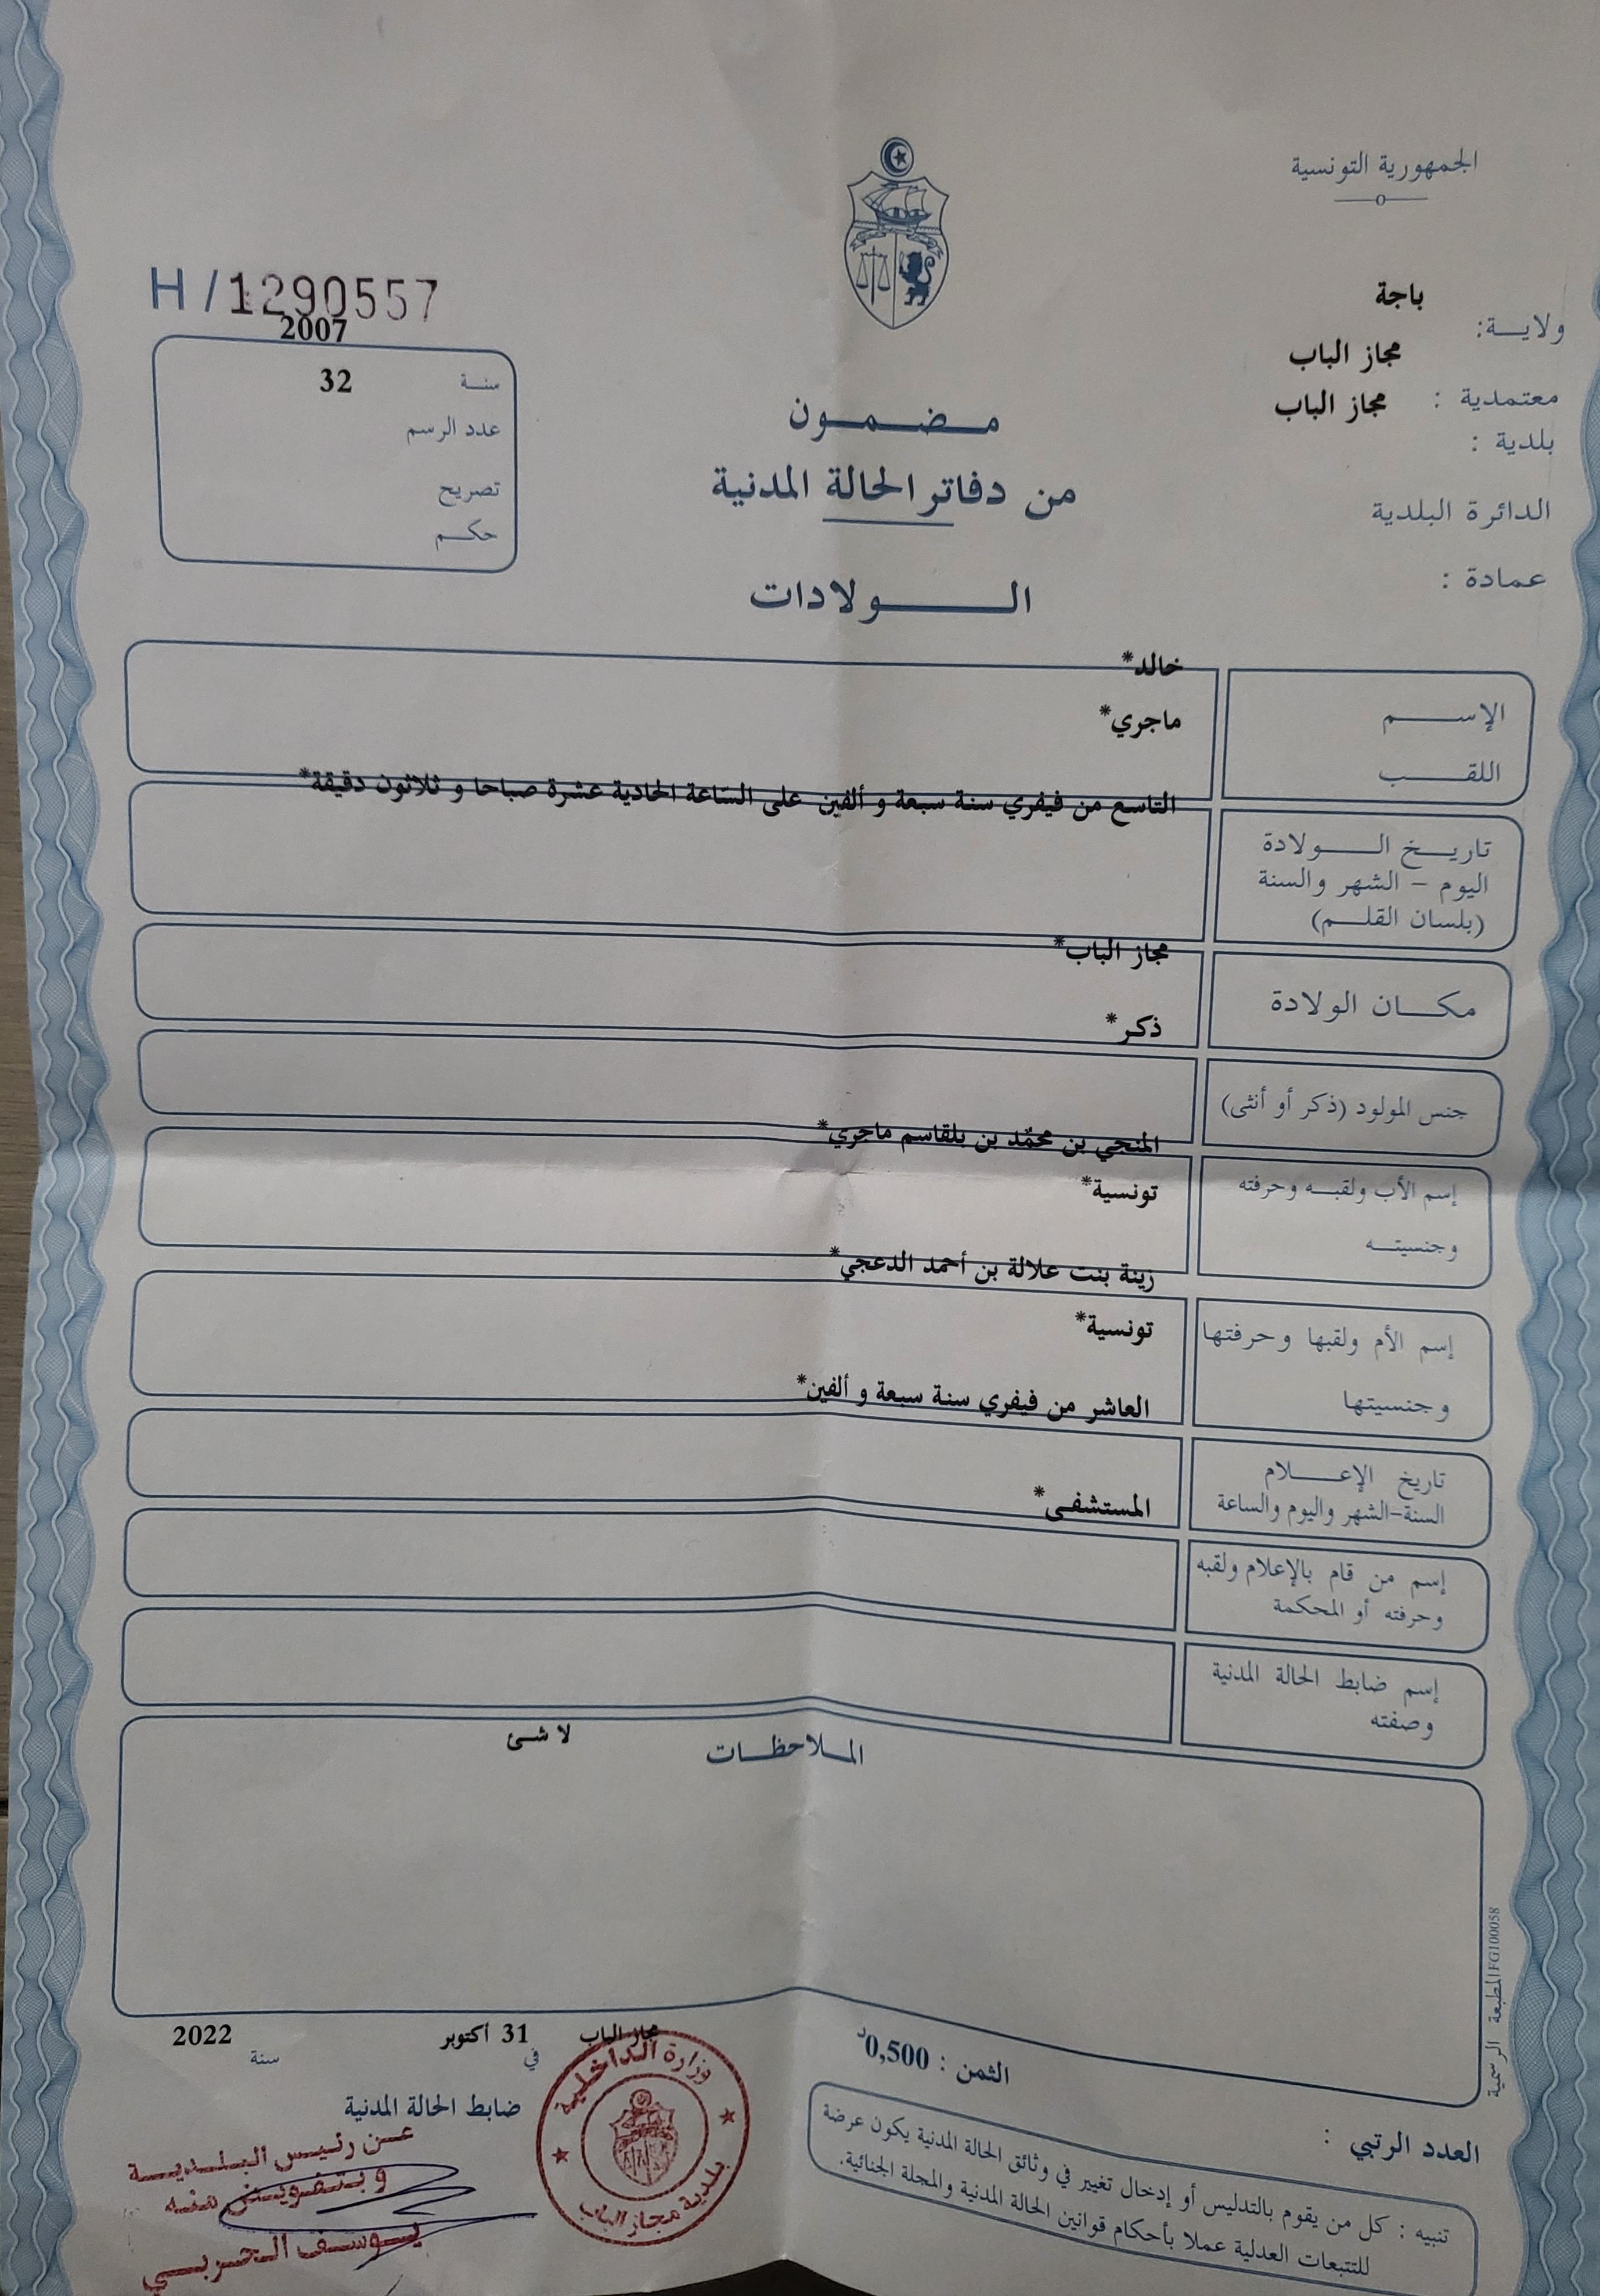 الجمهورية التونسية
باجة
ولايـــة:
مجاز الباب
معتمدية :
مجاز الباب
بلدية :
الدائرة البلدية
عمادة :
H / 1290557
2007
سنـــة
32
عدد الرسم
تصريح
حكــم
مــضــمــون
من دفاتر الحالة المدنية
الـــولادات
خالد*
الإســـم
ماجري*
اللقـــب
التاسع من فيفري سنة سبعة و ألفين على السّاعة الحادية عشرة صباحا و ثلاثون دقيقة*
تاريـــخ الـــولادة
اليوم – الشهر والسنة
(بلسان القلـــم)
مجاز الباب*
مكـــان الولادة
ذكر*
جنس المولود (ذكر أو أنثى)
المنجي بن محمّد بن بلقاسم ماجري*
إسم الأب ولقبـــه وحرفته
تونسية*
وجنسيتـــه
زينة بنت علالة بن أحمد الدعجي*
إسم الأم ولقبها وحرفتها
تونسية*
وجنسيتها
العاشر من فيفري سنة سبعة و ألفين*
تاريخ الإعـــلام
السنة-الشهر واليوم والساعة
المستشفى*
إسم من قام بالإعلام ولقبه
وحرفته أو المحكمة
إسم ضابط الحالة المدنية
وصفته
الملاحظـات
لا شئ
المطبعة الرسمية FG100058
مجاز الباب في 31 أكتوبر سنة 2022
الثمن : 0,500د
ضابط الحالة المدنية
عن رئيس البلدية
وبتفويض منه
يوسف الحربي
وزارة الداخلية
بلدية مجاز الباب
العدد الرتبي :
تنبيه : كل من يقوم بالتدليس أو إدخال تغيير في وثائق الحالة المدنية يكون عرضة
للتتبعات العدلية عملا بأحكام قوانين الحالة المدنية والمجلة الجنائية.